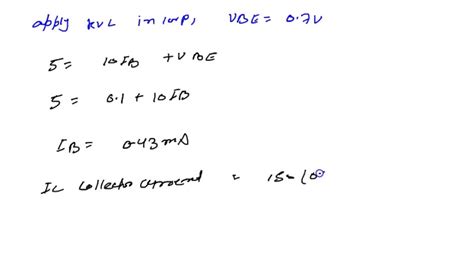 apply KVL in loop, VBE = 0.7V
5 = 10IB + VBE
5 = 0.7 + 10IB
IB = 0.43 mA
IC collector current = 15 - (0